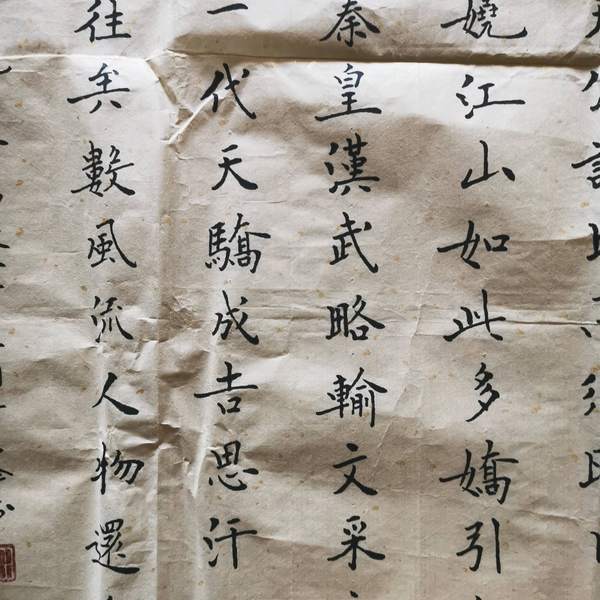 嬈江山如此多嬌引
秦皇漢武略輸文采
一代天驕成吉思汗
往矣數風流人物還